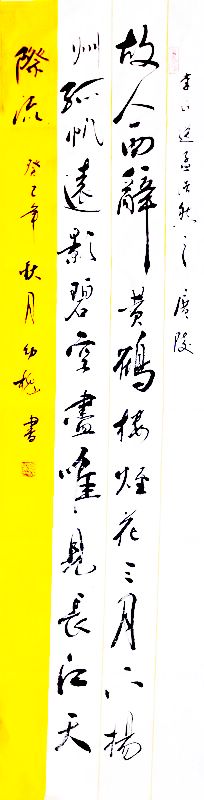 李白送孟浩然之廣陵
故人西辭黃鶴樓煙花三月下揚
州孤帆遠影碧空盡唯見長江天
際流 癸巳年秋月幼書